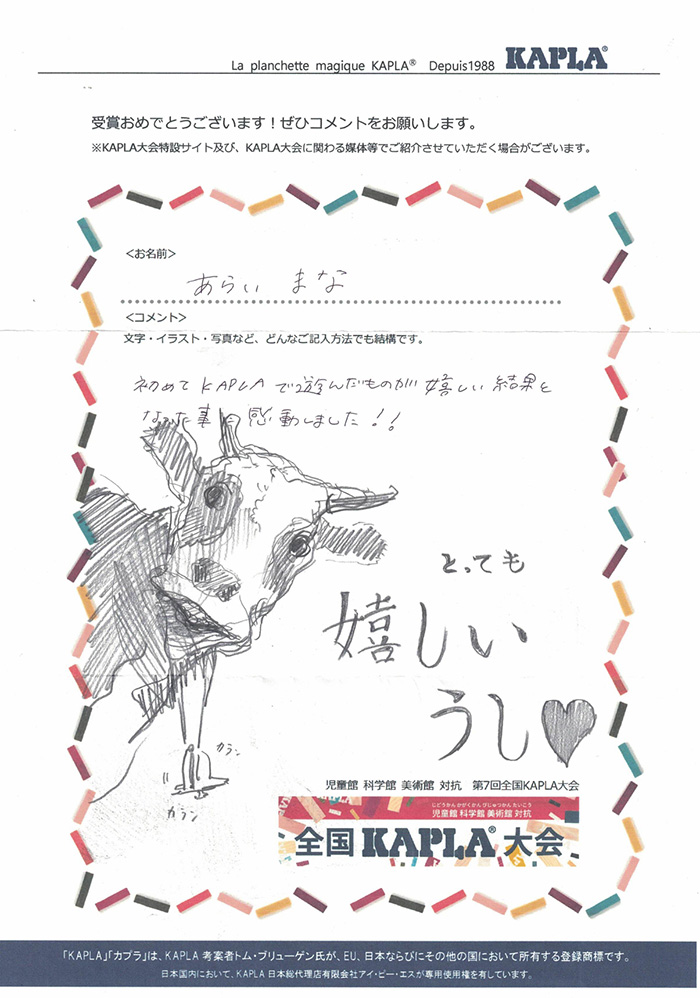 La planchette magique KAPLA® Depuis1988 KAPLA®
受賞おめでとうございます！ぜひコメントをお願いします。
※KAPLA大会特設サイト及び、KAPLA大会に関わる媒体等でご紹介させていただく場合がございます。
<お名前>
あらい まな
<コメント>
文字・イラスト・写真など、どんなご記入方法でも結構です。
初めて KAPLA で遊んだものが 嬉しい 結果と
なった事に感動しました！！
とっても
嬉しい
うし♥
カラン
カラン
児童館 科学館 美術館 対抗 第7回全国KAPLA大会
じどうかん かがくかん びじゅつかん たいこう
児童館 科学館 美術館 対抗
全国 KAPLA® 大会
「KAPLA」「カプラ」は、KAPLA 考案者トム・ブリューゲン氏が、EU、日本ならびにその他の国において所有する登録商標です。
日本国内において、KAPLA 日本総代理店有限会社アイ・ピー・エスが専用使用権を有しています。